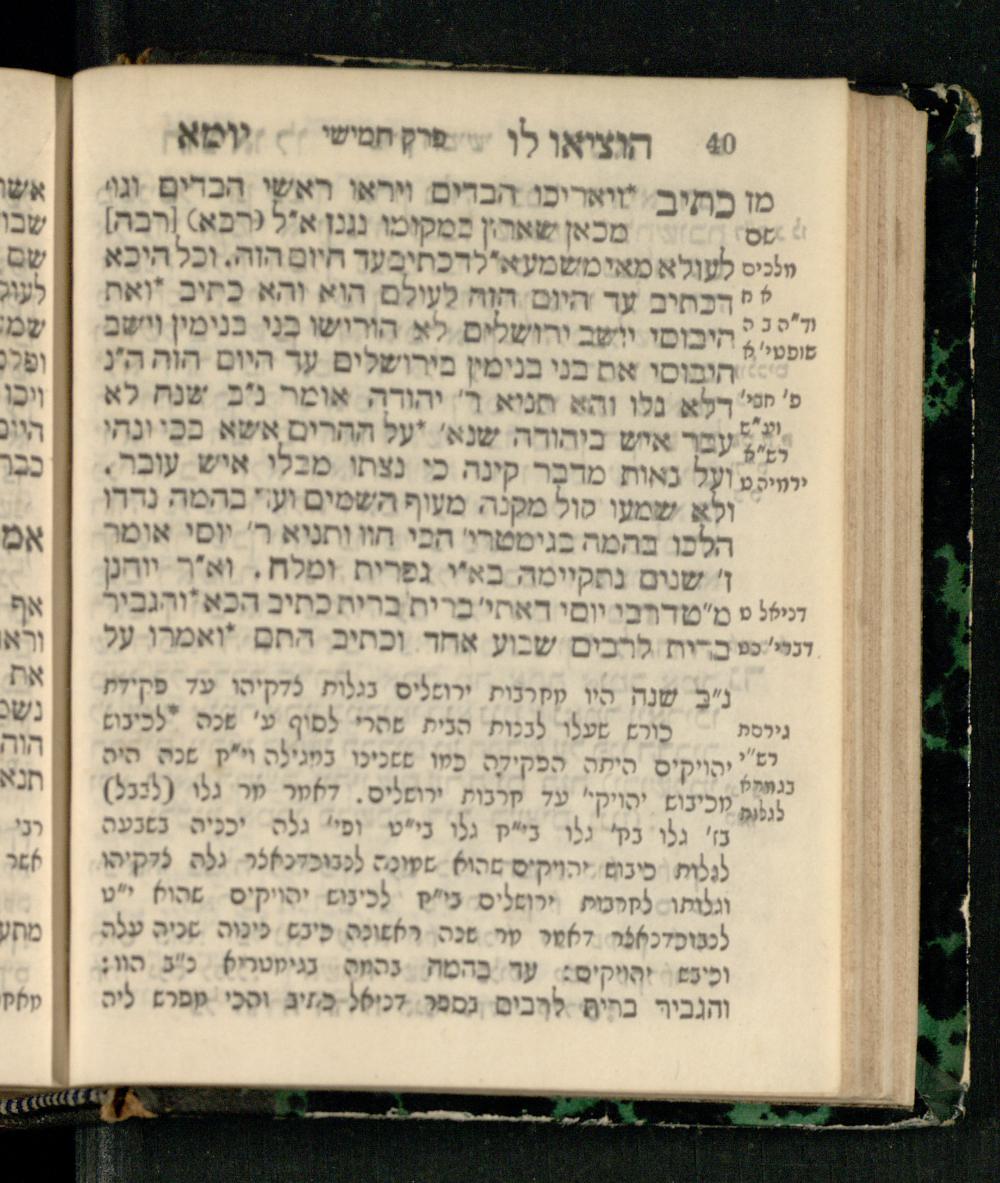 40 הוציאו לו פרק חמישי יומא
מז כתיב *ויאריכו הבדים ויראו ראשי הבדים וגו׳
מכאן שארון במקומו נגנז א״ל (רבא) [רבה]
לעולא מאי משמעא״ל דכתיב עד היום הזה. וכל היכא
דכתיב עד היום הזה לעולם הוא והא כתיב *ואת
היבוסי יושב ירושלים לא הורישו בני בנימין וישב
היבוסי את בני בנימין בירושלים עד היום הזה ה״נ
דלא גלו והא תניא ר׳ יהודה אומר נ״ב שנה לא
עבר איש ביהודה שנא׳ *על ההרים אשא בכי ונהי
ועל נאות מדבר קינה כי נצתו מבלי איש עובר.
ולא שמעו קול מקנה מעוף השמים ועד בהמה נדדו
הלכו בהמה בגימטרי׳ הכי הוו ותניא ר׳ יוסי אומר
ז׳ שנים נתקיימה בא״י גפרית ומלח. וא״ר יוחנן
מ״ט דרבי יוסי דאתי׳ ברית ברית כתיב הכא *והגביר
ברית לרבים שבוע אחד וכתיב התם *ואמרו על
נ״ב שנה היו מחרבות ירושלים בגלות צדקיהו עד פקידת
כורש שעלו לבנות הבית שהרי לסוף ע׳ שנה *לכיבוש
יהויקים היתה הפקידה כמו ששנינו במגילה וי״ח שנה היה
מכיבוש יהויקי׳ עד חרבות ירושלים. דאמר מר גלו (לבבל)
בז׳ גלו בח׳ גלו בי״ח גלו בי״ט ופי׳ גלה יכניה בשבעה
לגלות כיבוש יהויקים שהוא שמונה לנבוכדנאצר גלה צדקיהו
וגלותו לחרבות ירושלים בי״ח לכיבוש יהויקים שהוא י״ט
לנבוכדנאצר דאמר מר שנה ראשונה כיבש נינוה שניה עלה
וכיבש יהויקים: עד בהמה בהמה בגימטריא נ״ב הוו:
והגביר ברית לרבים בספר דניאל כתיב והכי מפרש ליה
שם
מלכים
א ח
וד״ה ב ה
שופטי׳ א
פ׳ חפי׳
וע״ש
רש״א
ירמיה ט
דניאל ט
דברי׳ כט
גירסת
רש״י
בגמרא
לגלות